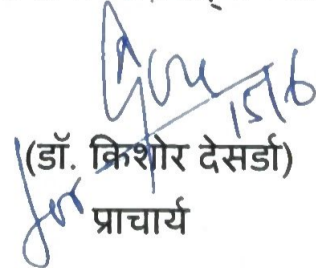 15/6
(डॉ. किशोर देसर्डा)
for प्राचार्य